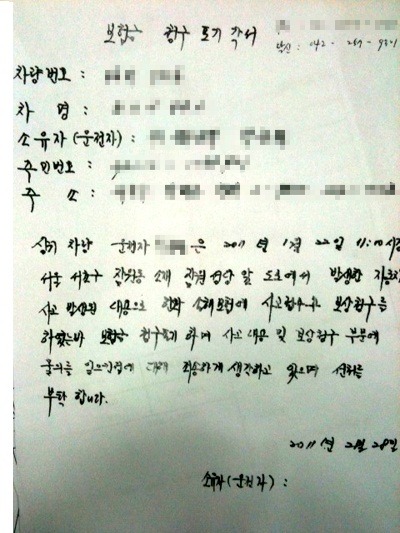 보험금 청구 포기 각서
팩스 : 042 -
차량번호 :
차 명 :
소유자 (운전자) :
주민번호 :
주 소 :
상기 차량 운전자 은 2011 년 1월 22일 11:00시경
서울 서초구 잠원동 소재 잠원 앞 도로에서 발생한 자동차
사고 발생된 대물으로 한화 손해보험에 사고접수와 보상청구를
하였는바 보험금 청구포기 하며 사고 대물 및 보상청구 부분에
물의를 일으킨점에 대해 죄송하게 생각하고 있으며 선처를
부탁 합니다.
2011 년 2월 28일
소유자(운전자) :